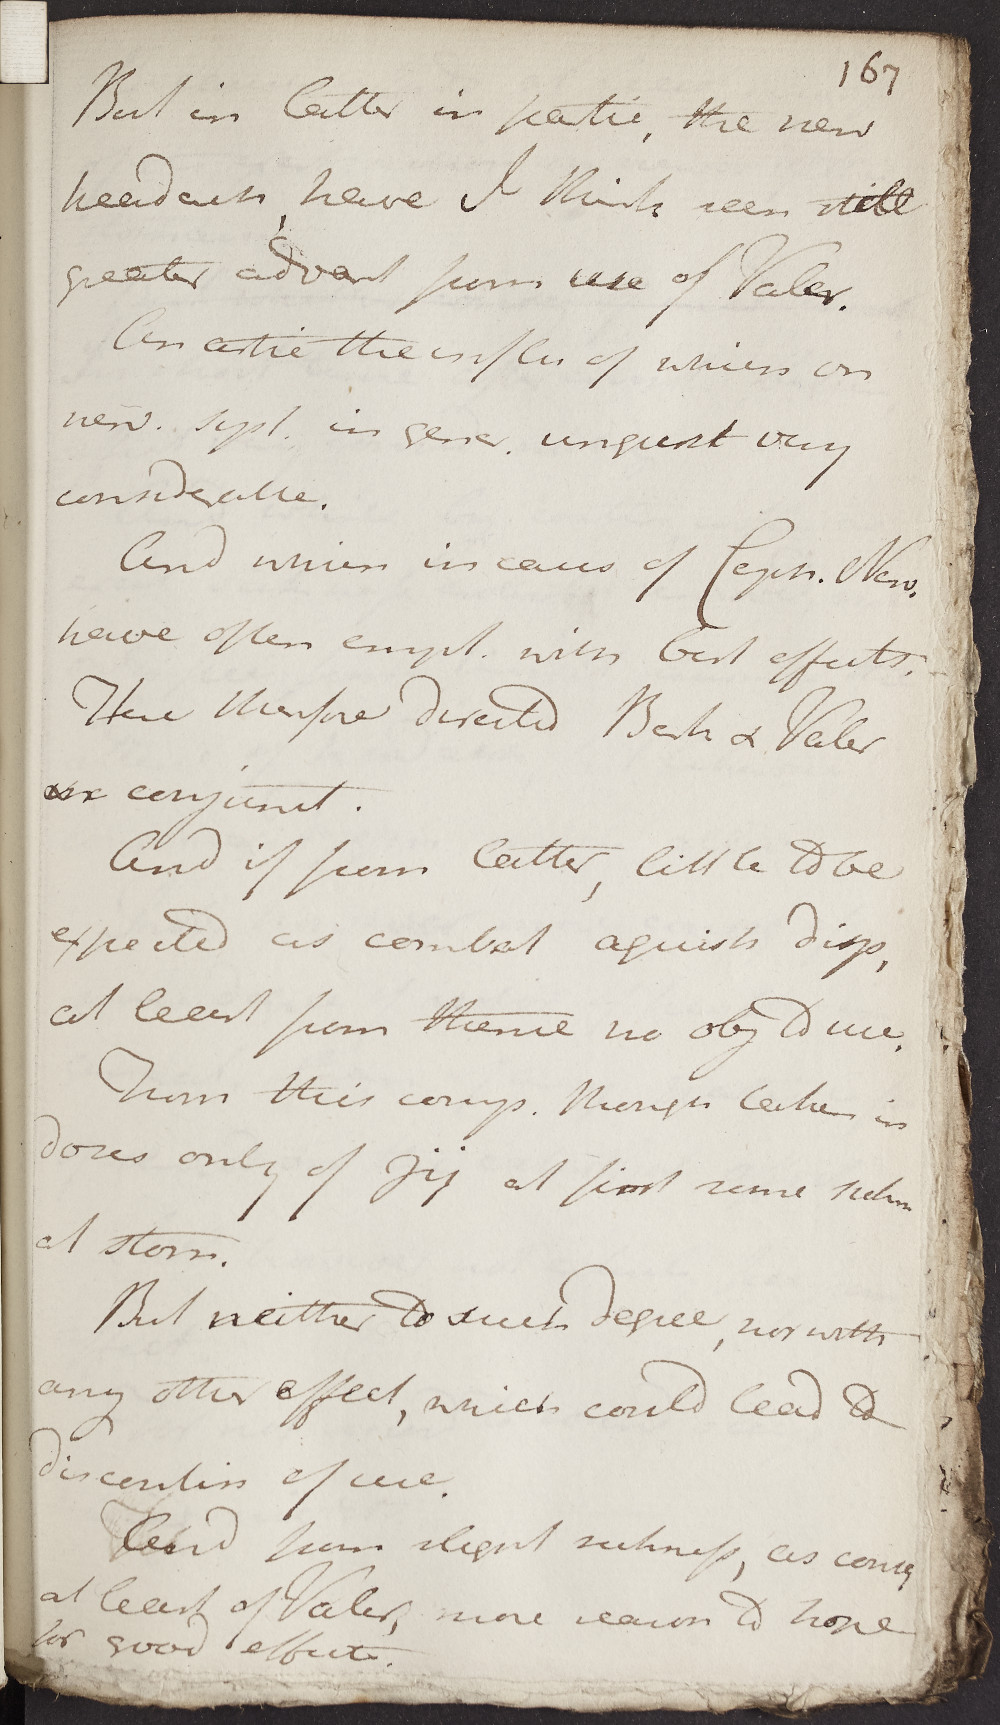 167
But in latter in partic, the nerv
headach, have I think seen still
greater advant from use of Valer.
An artic the influ of which on
nerv. syst. in gener. unquest very
considerable.
And which in cases of Ceph. Nerv.
have often empl. with best effects.
Here therefore directed Bark & Valer
conjunct.
And if from latter, little to be
expected as combat aguish disp,
at least from thence no obj to use.
From this comp. though taken in
doses only of ʒij at first some sickn
at stom.
But neither to such degree, nor with
any other effect, which could lead to
discontin of use.
And from slight sickness, as conseq
at least of Valer, more reason to hope
for good effects.